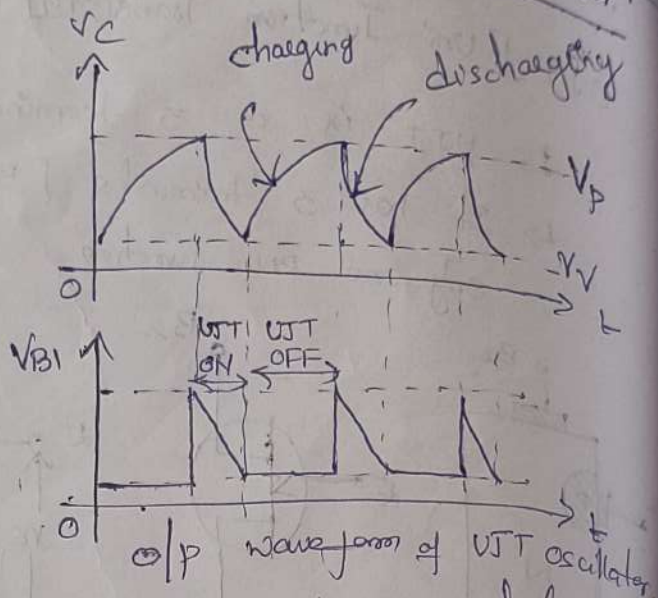 VC
charging
discharging
VP
VV
O
t
VB1
UJT UJT
ON OFF
O
t
O/P waveform of UJT oscillator